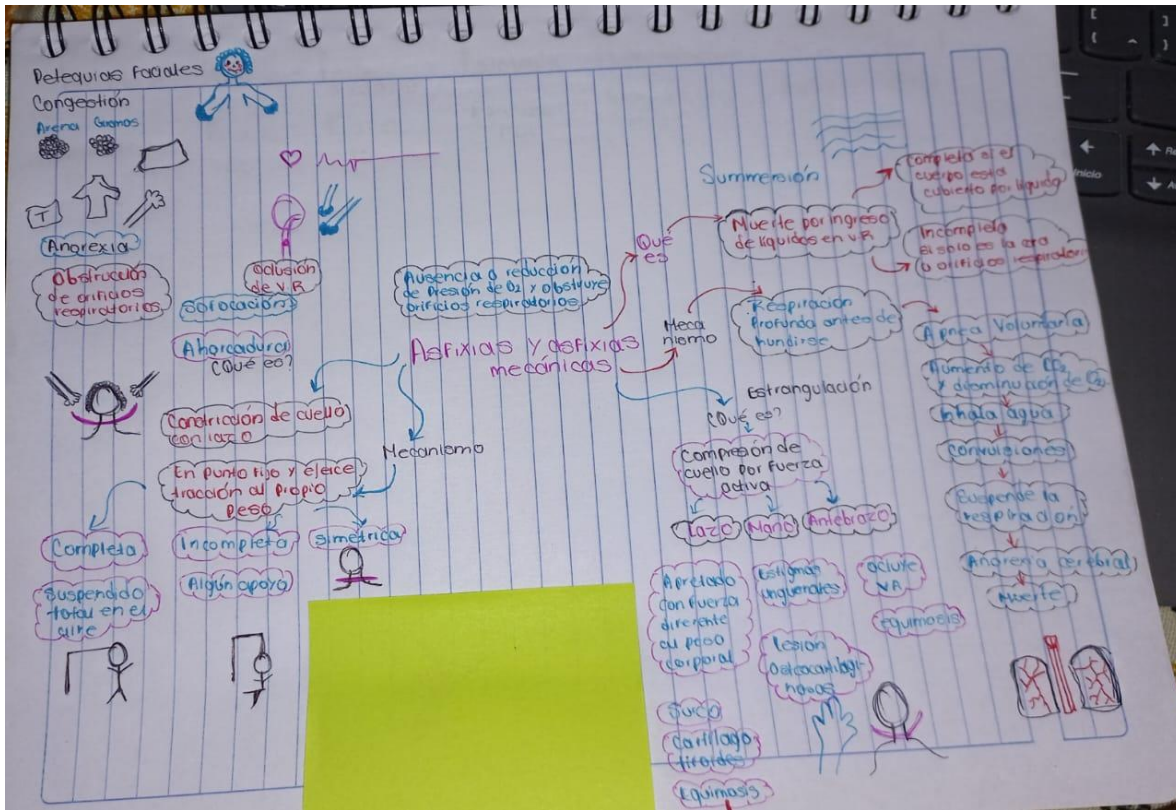 Petequias Faciales
Congestión
Arena Granos
T
Anorexia
Obstrucción
de orificios
respiratorios
Oclusión
de V.R
Sofocación
Ahorcadura
¿Qué es?
Constricción de cuello
con lazo
Mecanismo
En punto fijo y ejerce
tracción al propio
peso
Completa
Incompleta
Simetrica
Suspendido
total en el
aire
Algún apoyo
Ausencia o reducción
de Presión de O2 y obstruye
orificios respiratorios
Asfixias y asfixias
mecánicas
Summersión
Qué
es
Muerte por ingreso
de líquidos en V.R
Completa si el
cuerpo esta
cubierto por liquido
Incompleta
si solo es la cara
u orificios respiratorio
Meca
nismo
Respiración
Profunda antes de
hundirse
Apnea Voluntaria
Aumento de CO2
y disminución de O2
Inhala agua
Convulsiones
Suspende la
respiración
Anoxemia cerebral
Muerte
Estrangulación
¿Qué es?
Compresión de
cuello por fuerza
activa
Lazo
Mano
Antebrazo
Apretado
con fuerza
diferente
al peso
corporal
Surco
Cartílago
tiroides
Equimosis
Estigmas
ungueales
Lesión
Osteocartilagi
nosas
Ocluye
VA
equimosis
Inicio